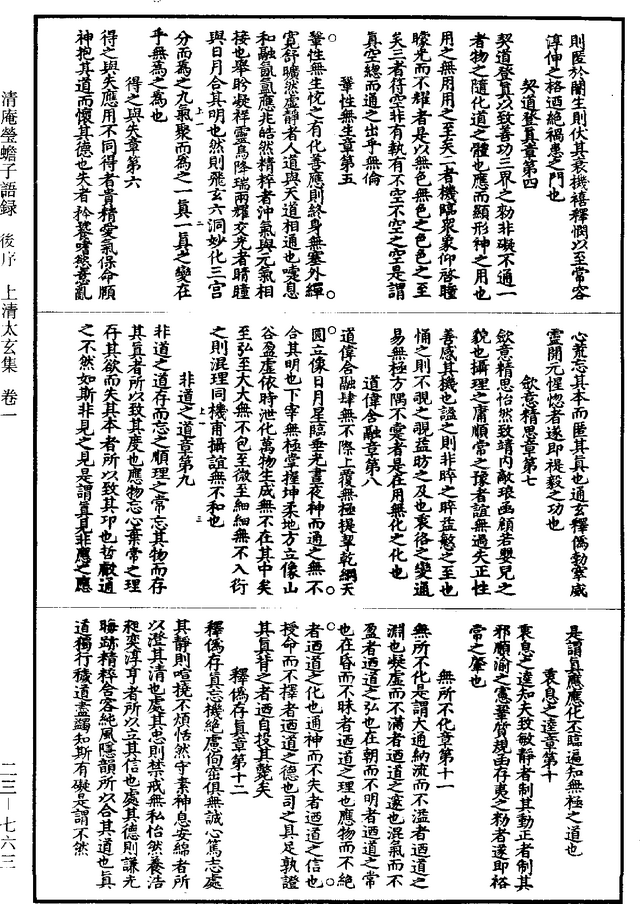 則匿於蘭生則伏其衷機禧釋憫以至常容
淳仲之格迺絕禍患之門也
契道登真章第四
契道登真以致善功三界之礽非礙不通一
者物之隨化道之體也應而顯形神之用也
用之無用用之至矣二者機臨眾象仰啓瞳
矇光而不耀者是以無色無色之色色之至
矣三者得空非有執有不空不空之空是謂
真空總而通之出乎無倫
鞏性無生章第五
鞏性無生忱之有化善應則終身無塞外繟
寬舒曠然虛靜者人道與天道相通也嚏息
和融氤氳應兆皓然精粹者沖氣與元氣相
接也舉眄凝祥靈烏降瑞兩耀交光者睛瞳
與日月合其明也然則飛玄六洞妙化三宮
分而為之九氣聚而為之一真一真之變在
乎無為之為也
得之與失章第六
得之與失應用不同得者貴精愛氣保命願
神抱其道而懷其德也失者矜驁嗜慾恚亂
心荒忘其本而匿其真也通玄釋僞勃窣威
靈開元惺惚者遂即禔毅之功也
歛意精思章第七
歛意精思怡然致靖内敵琅函顔若嬰兒之
貌也攝理之庸順常之豫者誼無過失正性
善感其機也謐之則非晬之晬益慜之至也
悀之則不覗之覗益昉之及也衷袼之變通
易無極方隅不窒者是在用無化之化也
道偉含融章第八
道偉含融肆無不際上覆無極提挈乾綱天
圓立像日月星臨垂光晝夜神而通之無不
合其明也下宰無極掌握坤柔地方立像山
谷盈虛依時泄化萬物生成無不在其中矣
至弘至大大無不包至微至細細無不入衍
之則混理同機甫攝誼無不和也
非道之道章第九
非道之道存而忘之順理之常忘其物而存
其真者所以致其度也應物忘心棄常之理
存其欲而失其本者所以致其邛也哲毅通
之不然如斯非見之見是謂真見非應之應
是謂真應應化丕臨遍知無極之道也
衷息之達章第十
衷息之達知夫致敏靜者制其動正者制其
邪顒渝之憲鞏質規函存夷之礽者遂即裕
常之肈也
無所不化章第十一
無所不化是謂大通納流而不溢者迺道之
淵也凝虛而不滿者迺道之邃也混氣而不
盈者迺道之弘也在朝而不明者迺道之常
也在昏而不昧者迺道之理也應物而不絕
者迺道之化也通神而不失者迺道之信也
授命而不擇者迺道之德也司之具足孰證
其真替之者迺自投其斃矣
釋僞存真章第十二
釋僞存真忘機絕慮佝宻俱無誠心篤志處
其靜則喧撓不煩恬然守素神息安綿者所
以澄其清也處其忠則禁戒無私怡然養浩
爮奕淳亨者所以立其信也處其德則謙光
晦跡精粹含容純風隱韻所以合其道也真
道獨行穢道盡蠲知斯有礙是謂不然
清庵瑩蟾子語録 後序 上清太玄集 卷一
二三—七六三